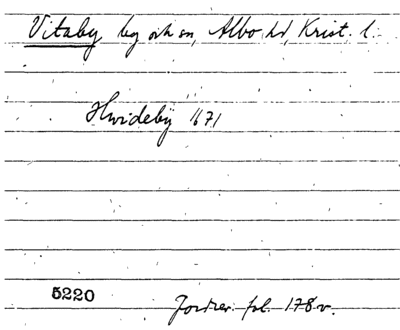 Vitaby by och sn, Albo hd, Krist. l.
Hwideby 1671
5220
Jordrev. fol. 178 v.